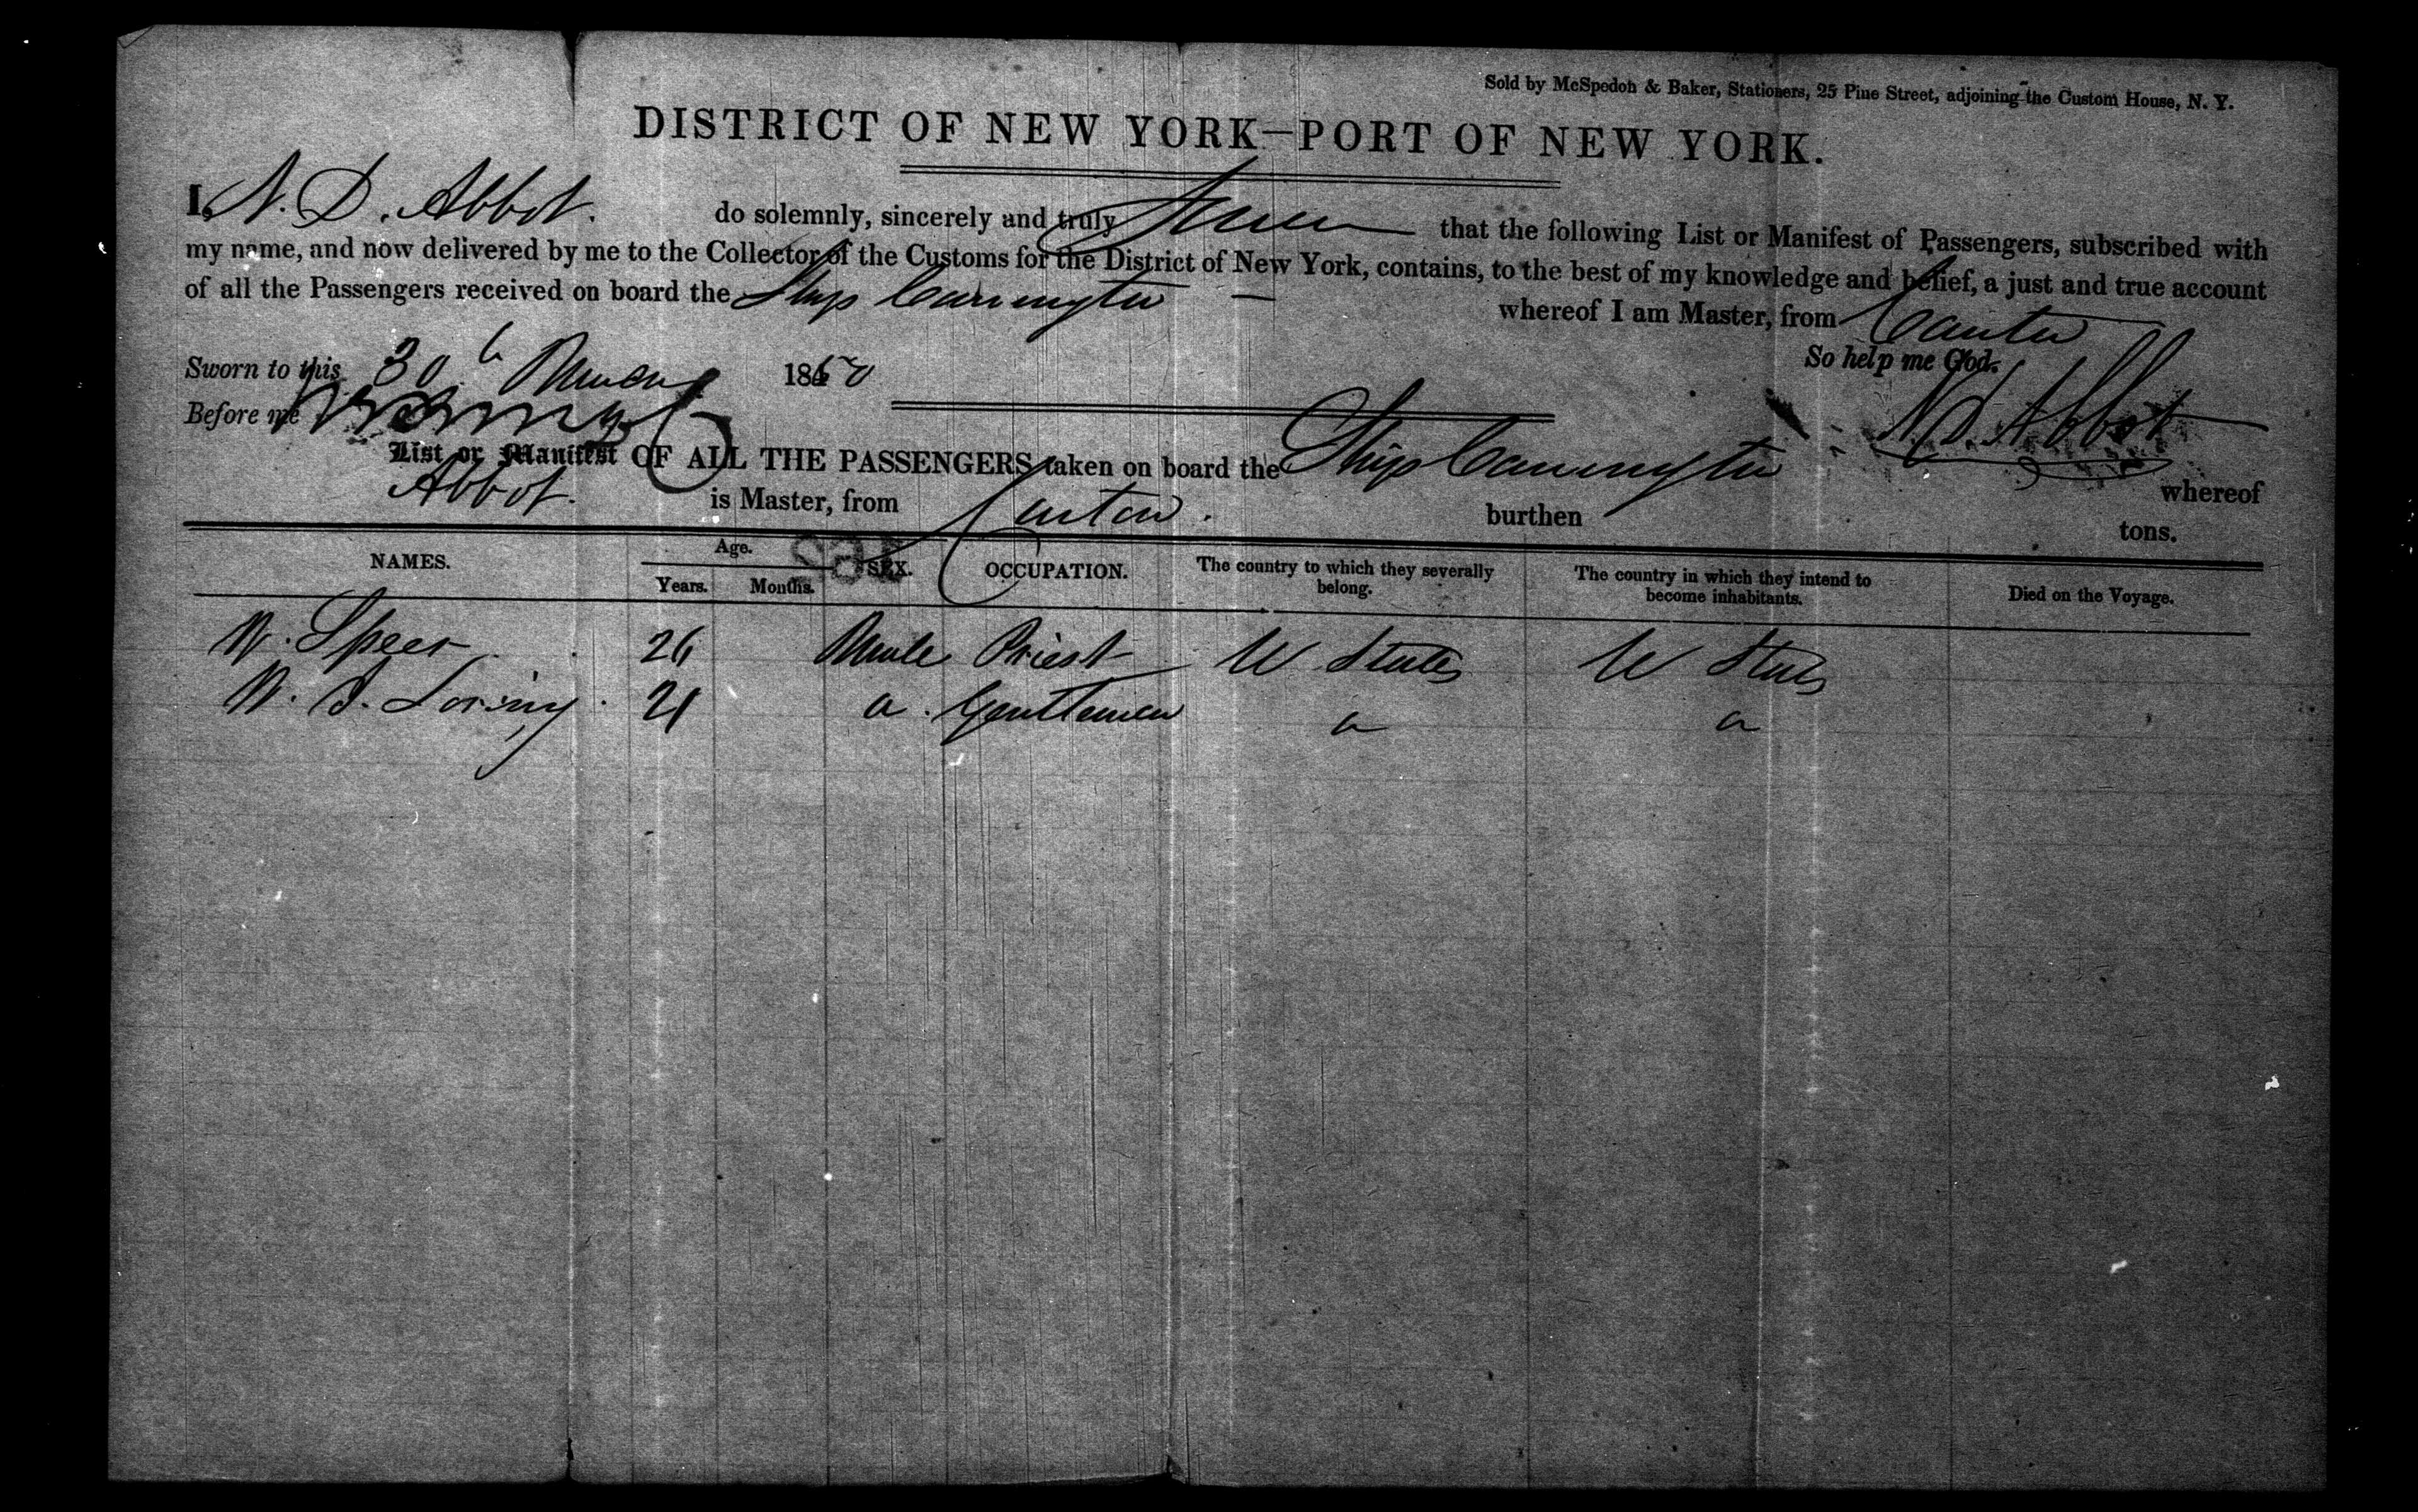 Sold by McSpedon & Baker, Stationers, 25 Pine Street, adjoining the Custom House, N. Y.
DISTRICT OF NEW YORK—PORT OF NEW YORK.
I, N. D. Abbot. do solemnly, sincerely and truly Swear that the following List or Manifest of Passengers, subscribed with
my name, and now delivered by me to the Collector of the Customs for the District of New York, contains, to the best of my knowledge and belief, a just and true account
of all the Passengers received on board the Ship Carrington — whereof I am Master, from Canton
Sworn to this 30 March 1850 So help me God.
Before me N.D. Abbot
List or Manifest OF ALL THE PASSENGERS taken on board the Ship Carrington whereof
Abbot. is Master, from Canton. burthen tons.
NAMES. Age. SEX. OCCUPATION. The country to which they severally belong. The country in which they intend to become inhabitants. Died on the Voyage.
Years. Months.
W. Speer 26 Male Priest U States U States
W. S. Loring. 21 a. Gentleman a a